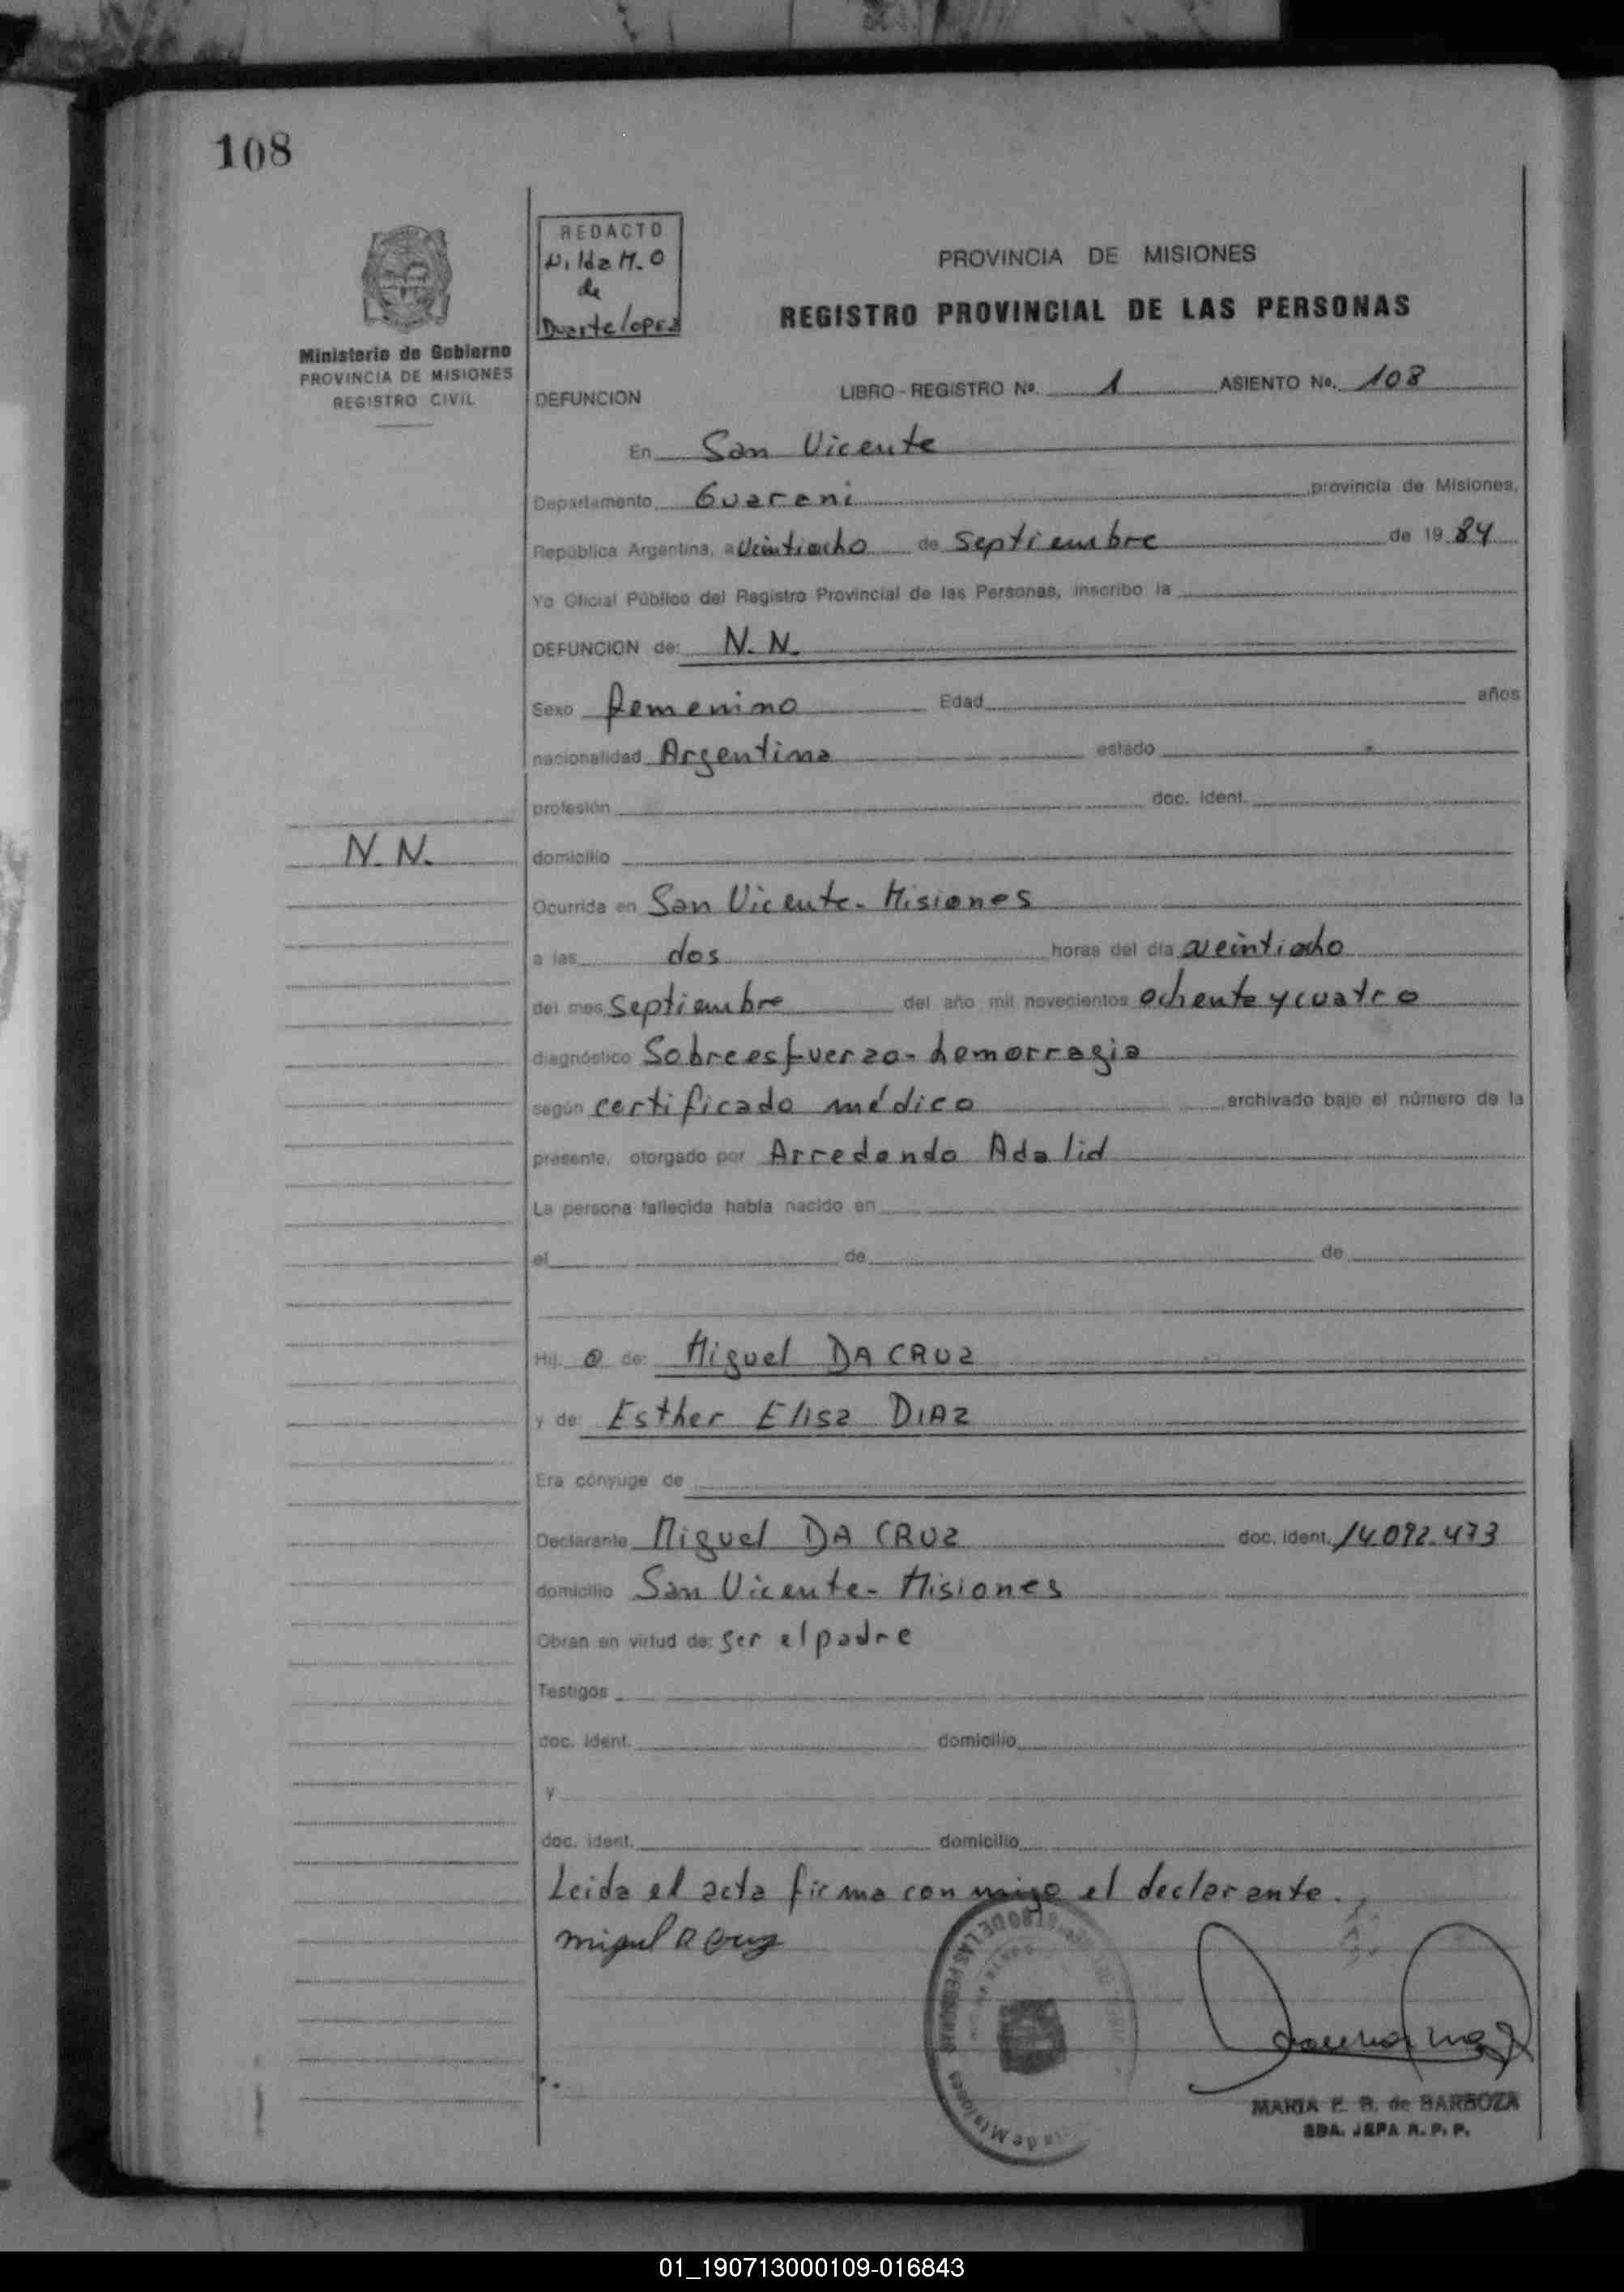 108
REDACTO
Nilda M. O
de
Duarte Lopez
Ministerio de Gobierno
PROVINCIA DE MISIONES
REGISTRO CIVIL
PROVINCIA DE MISIONES
REGISTRO PROVINCIAL DE LAS PERSONAS
DEFUNCION LIBRO - REGISTRO No. 1 ASIENTO No. 108
En San Vicente
Departamento Guarani provincia de Misiones,
República Argentina, a Veintiocho de Septiembre de 19 84
Yo Oficial Público del Registro Provincial de las Personas, inscribo la
DEFUNCION de: N. N.
Sexo femenino Edad años
nacionalidad Argentina estado
profesión doc. ident.
N. N.
domicilio
Ocurrida en San Vicente - Misiones
a las dos horas del día veintiocho
del mes Septiembre del año mil novecientos ochenta y cuatro
diagnóstico Sobreesfuerzo - hemorragia
según certificado médico archivado bajo el número de la
presente, otorgado por Arredondo Adalid
La persona fallecida había nacido en
el de de
Hij a de: Miguel DA CRUZ
y de: Esther Elisa DIAZ
Era cónyuge de
Declarante Miguel DA CRUZ doc. ident. 14.092.473
domicilio San Vicente - Misiones
Obran en virtud de: ser el padre
Testigos
doc. ident. domicilio
y
doc. ident. domicilio
Leida el acta firma con migo el declarante.
MARIA E. B. de BARBOZA
SDA. JEFA R. P. P.
01_190713000109-016843